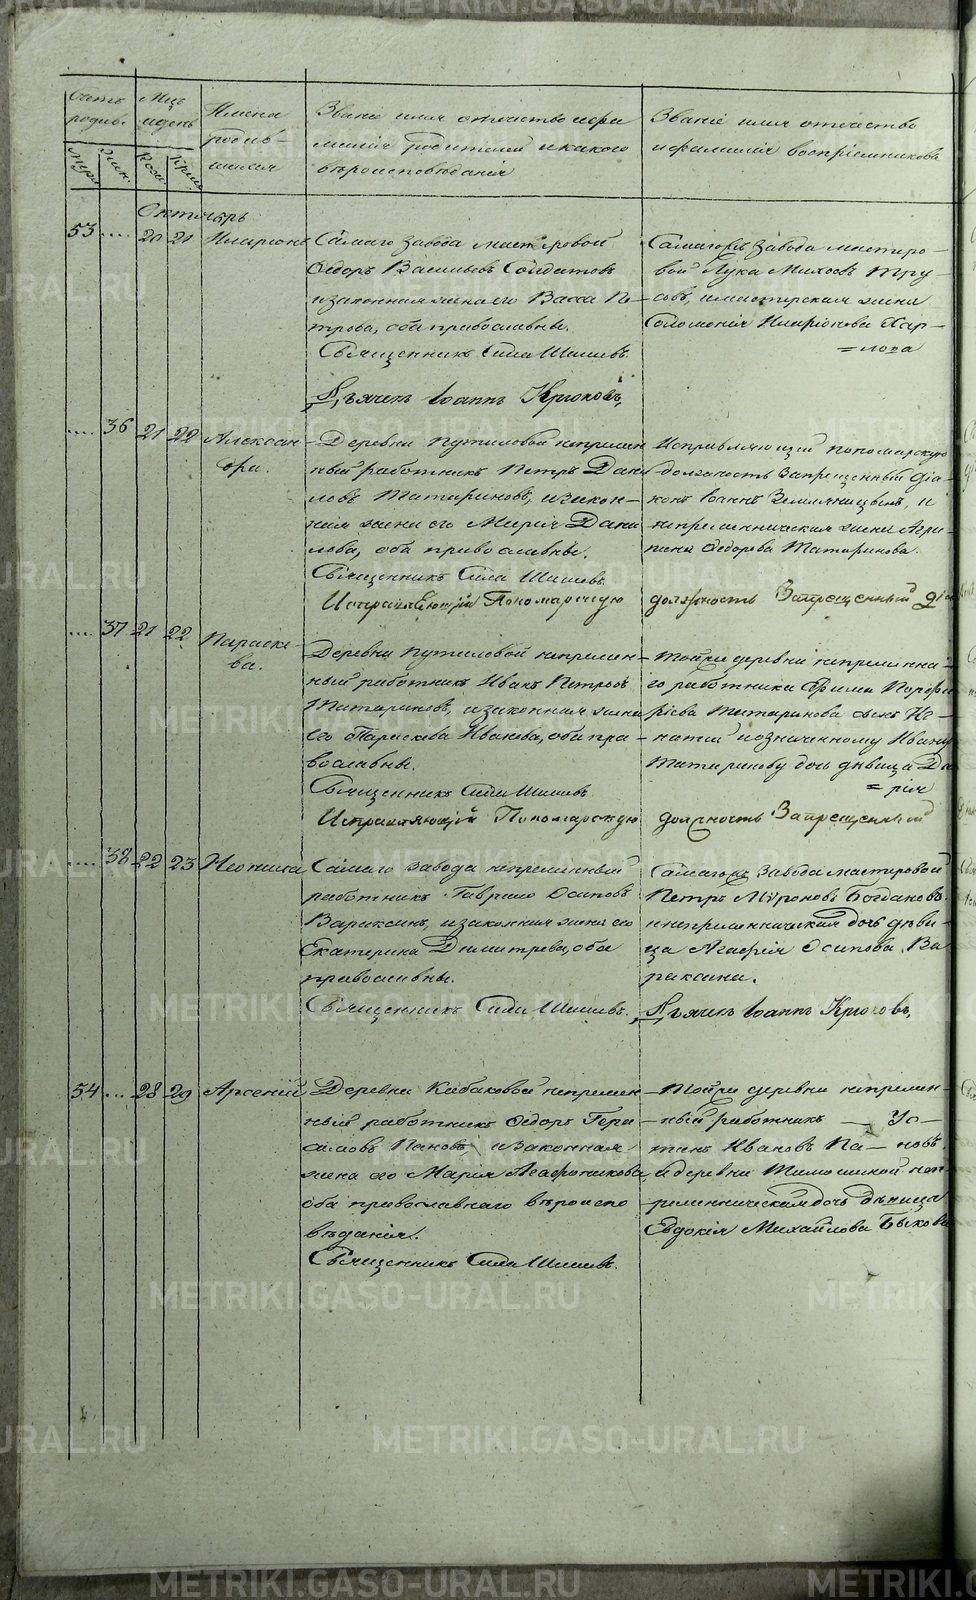 Счетъ родив.
Мцъ и день
Имена родив-шихся
Званіе имя отечество и фамилія родителей и какого вѣроисповѣданія
Званіе имя отечество и фамилія воспріемниковъ
Муж.
Жен.
Рож.
Крещ.
Октябрь
53 .... 20 21 Иларіонъ
Самаго завода мастеровой
Ѳедоръ Васильевъ Солдатовъ
и законная жена его Васса Пе-
трова, оба православные.
Священникъ Сила Шишевъ
Дьячекъ Іоаннъ Крюковъ,
Самагожъ завода мастеро-
вой Лука
совъ, и мастерская жена
Соломонія Иларіонова Хар-
=лова
.... 36 21 22 Алексан-
дра.
Деревни Путиловой непремѣн-
ный работникъ Петръ Дани
ловъ Татариновъ, и закон-
ная жена его Марія Дани
лова, оба православные.
Священникъ Сила Шишевъ.
Исправляющій Пономарскую должность Запрещенный діа
Исправляющій пономарскую
должность Запрещенный діа-
конъ Іоаннъ Земляницынъ, и
непремѣнническая жена Агри-
пина Ѳедорова Татаринова.
.... 37 21 22 Параске-
ва.
Деревни Путиловой непремѣн-
ный работникъ Иванъ Петровъ
Татариновъ, и законная жена
его Параскева Иванова, оба пра-
вославные.
Священникъ Сила Шишевъ
Исправляющій Пономарскую должность Запрещенный
Тойже деревни непремѣнна-
го работника Ефима Порфи
рьева Татаринова сынъ Иг-
натій и означенному Ивану
Татаринову дочь дѣвица Да
=рія
.... 38 22 23 Неонила
Самаго завода непремѣнный
работникъ Гаврило Осиповъ
Вараксинъ, и законная жена его
Екатерина Димитрева, оба
православные.
Священникъ Сила Шишевъ.
Самагожъ завода мастеровой
Петръ Мѵроновъ Богдановъ
и непремѣнническая дочь дѣви-
ца Агафія Осипова Ва
раксина.
Дьячекъ Іоаннъ Крюковъ,
54 ... 28 29 Арсеній
Деревни Кабаковой непремѣн-
ный работникъ Ѳедоръ Гера
симовъ Пановъ, и законная
жена его Марія Агафоникова,
оба православнаго вѣроиспо
вѣданія.
Священникъ Сила Шишевъ.
Тойже деревни непремѣн-
ный работникъ — Ус-
тинъ Ивановъ Па-новъ
и деревни Тимошиной неп
ремѣнническая дочь дѣвица
Евдокія Михайлова Быкова